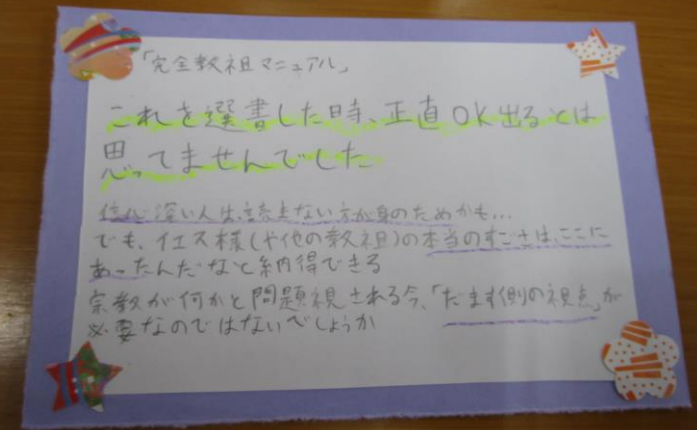 「完全教祖マニュアル」
これを選書した時、正直OK出るとは
思ってませんでした
信心深い人は、読まない方が身のためかも…
でも、イエス様(や他の教祖)の本当のすごさは、ここに
あったんだなと納得できる
宗教が何かと問題視される今、「だます側の視点」が
必要なのではないでしょうか